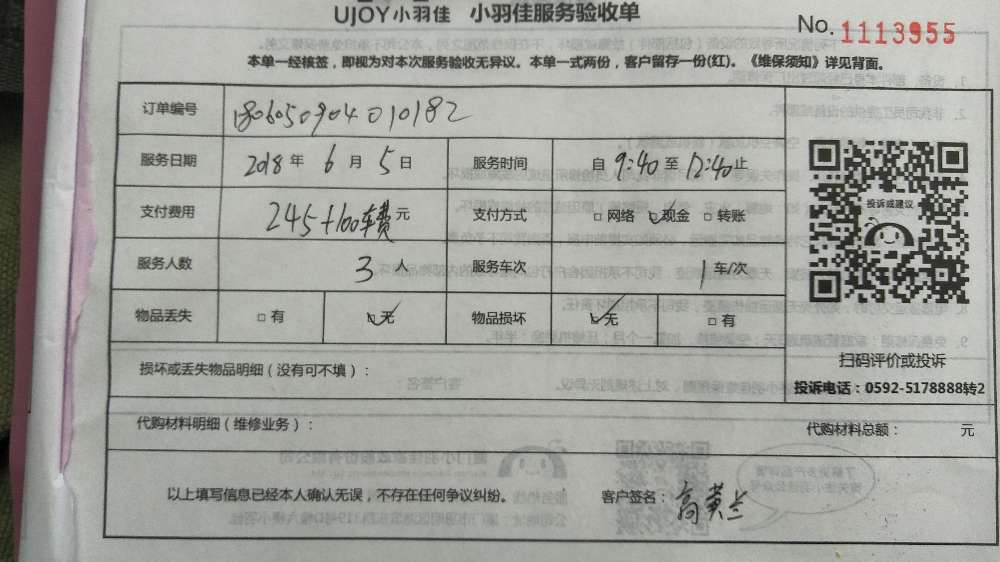 UJOY小羽佳 小羽佳服务验收单
No. 1113955
本单一经核签，即视为对本次服务验收无异议。本单一式两份，客户留存一份(红)。《维保须知》详见背面。
订单编号 180605090401​0182
服务日期 2018 年 6 月 5 日 服务时间 自 9:40 至 12:40 止
支付费用 245+100车费 元 支付方式 □ 网络 ☑ 现金 □ 转账
服务人数 3 人 服务车次 1 车/次
物品丢失 □ 有 ☑ 无 物品损坏 ☑ 无 □ 有
投诉或建议
扫码评价或投诉
投诉电话：0592-5178888转2
损坏或丢失物品明细（没有可不填）：
代购材料明细（维修业务）：
代购材料总额： 元
以上填写信息已经本人确认无误，不存在任何争议纠纷。 客户签名：高黄兰